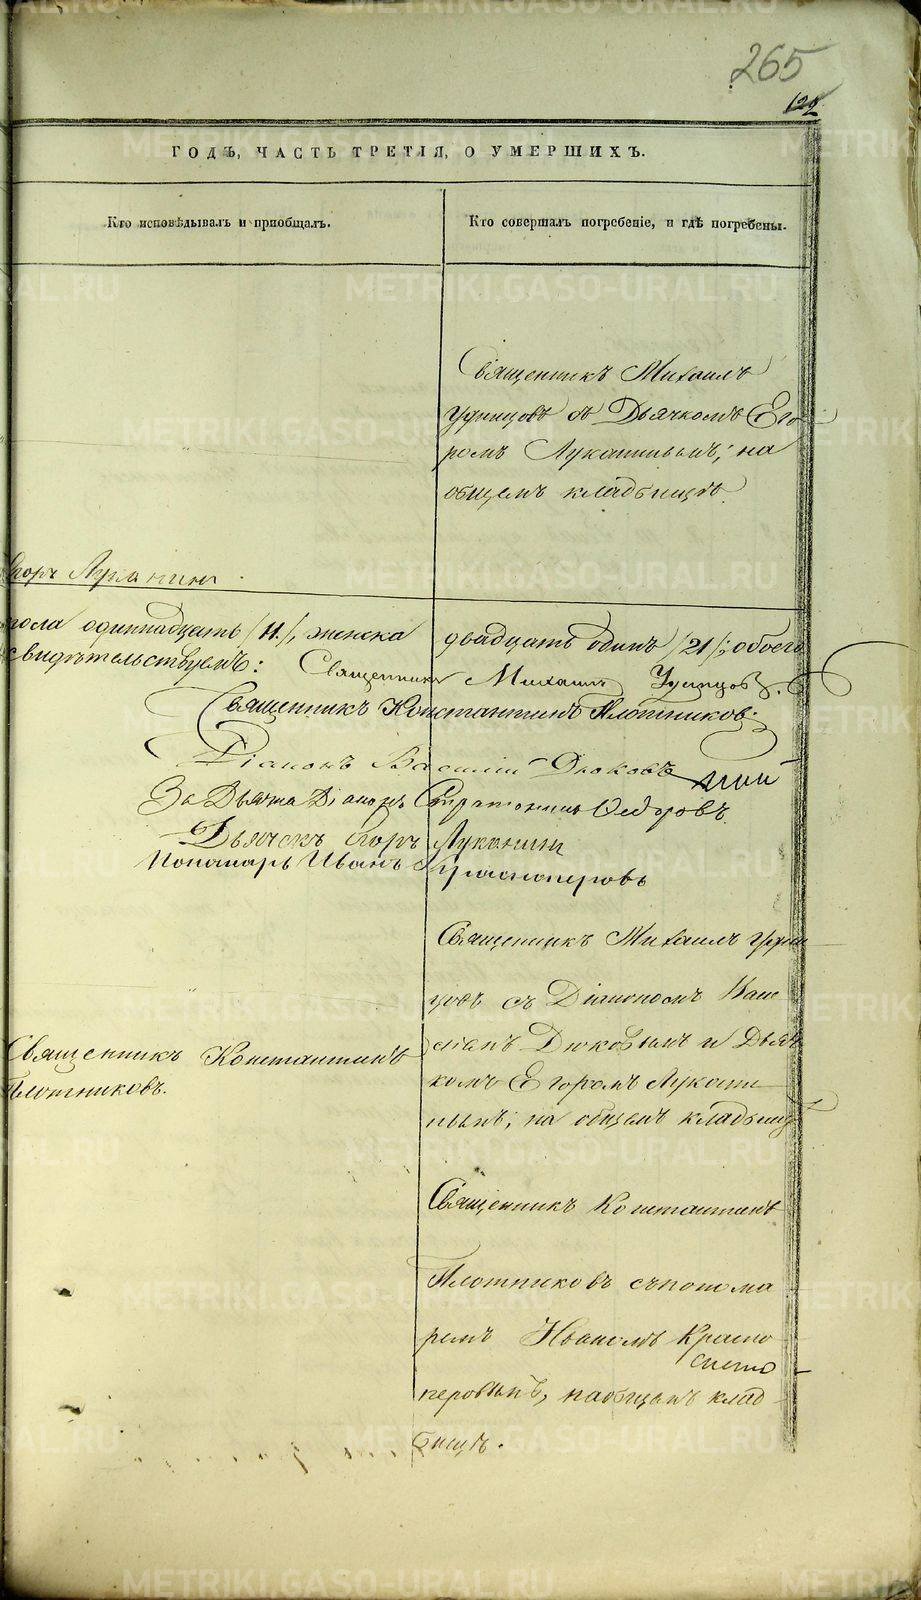 265
122
ГОДЪ, ЧАСТЬ ТРЕТІЯ, О УМЕРШИХЪ.
Кто исповѣдывалъ и пріобщалъ.
Кто совершалъ погребеніе, и гдѣ погребены.
Священникъ Михаилъ
Удинцовъ съ Дьячкомъ Его-
ромъ Луканинымъ; на
общемъ кладбищѣ.
Егоръ Луканинъ
пола одиннадцать /11/, женска двадцать одинъ /21/; обоего
свидѣтельствуемъ: Священникъ Михаилъ Удинцовъ.
Священникъ Константинъ Плотниковъ.
Діаконъ Василій Дюковъ
За Дьячка Діаконъ Стратоникъ Федоровъ
Дьячекъ Егоръ Луканинъ
Пономарь Иванъ Красноперовъ
Священникъ Михаилъ Удин
цовъ съ Діакономъ Васи
ліемъ Дюковымъ и Дьяч
комъ Егоромъ Лукани
нымъ; на общемъ кладбищѣ
Священникъ Константинъ
Плотниковъ.
Священникъ Константинъ
Плотниковъ съ понома
ремъ Иваномъ Красно
перовымъ, на общемъ клад
бищѣ.
METRIKI.GASO-URAL.RU